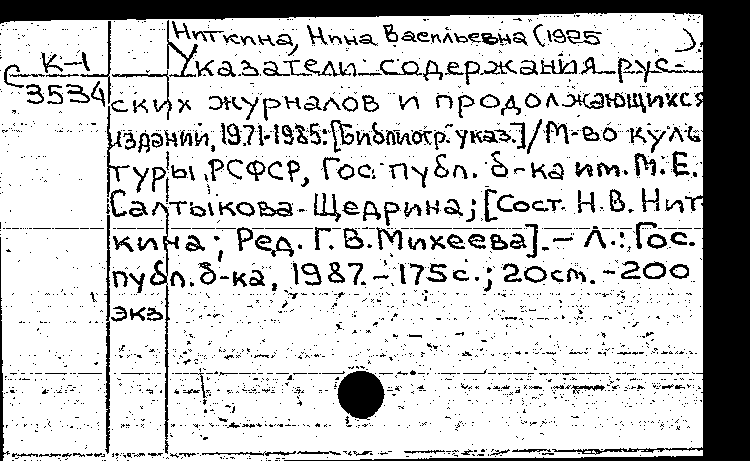 Ниткина, Нина Васильевна (1925 ).
К-1 Указатели содержания рус-
3534 ских журналов и продолжающихся
изданий, 1971-1985: [Библиогр. указ.] / М-во куль
туры РСФСР, Гос. публ. б-ка им. М. Е.
Салтыкова-Щедрина; [Сост. Н. В. Нит
кина; Ред. Г. В. Михеева]. - Л.: Гос.
публ. б-ка, 1987. - 175 с.; 20 см. - 200
экз.